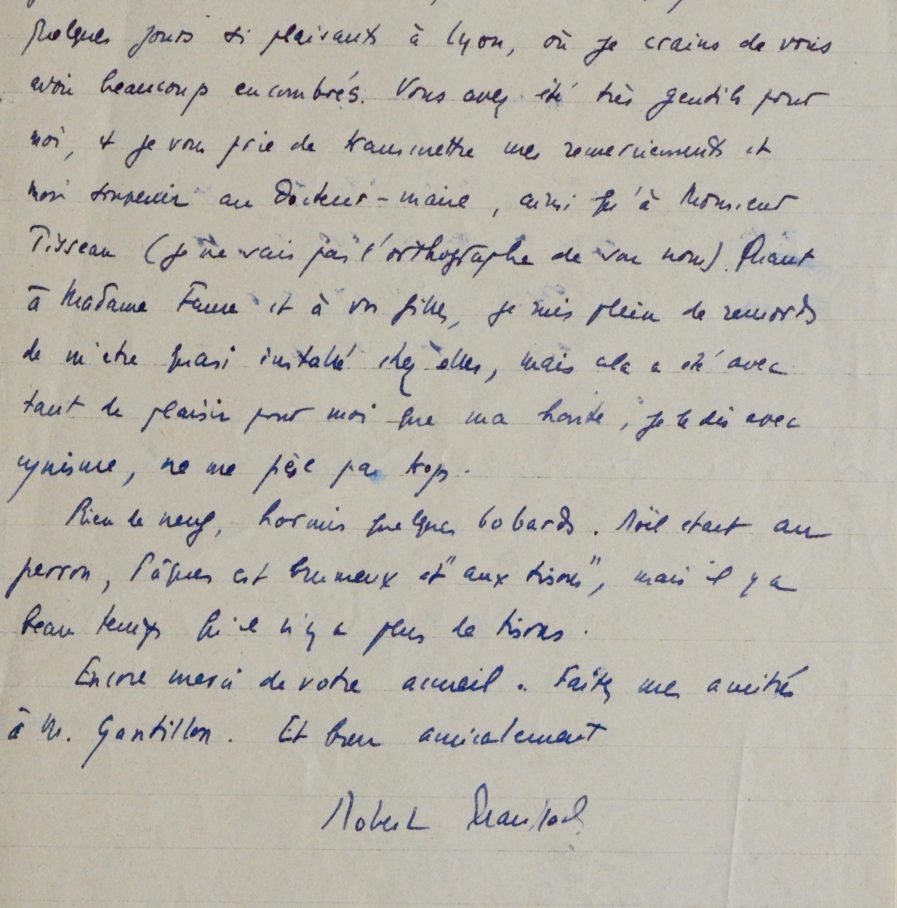 quelques jours si plaisants à Lyon, où je crains de vous
avoir beaucoup encombrés. Vous avez été très gentils pour
moi, & je vous prie de transmettre mes remerciements et
mon souvenir au Docteur-maire, ainsi qu'à Monsieur
Tisseau (je ne sais pas l'orthographe de son nom). Quant
à Madame et à vos filles, je suis plein de remords
de m'être quasi installé chez elles, mais cela a été avec
tant de plaisir pour moi que ma honte, je le dis avec
cynisme, ne me pèse pas trop.
Rien de neuf, hormis quelques bobards. Noël étant au
perron, Pâques est brumeux et "aux tisons", mais il y a
beau temps qu'il n'y a plus de tisons.
Encore merci de votre accueil. Faites mes amitiés
à M. Gantillon. Et bien amicalement
Robert